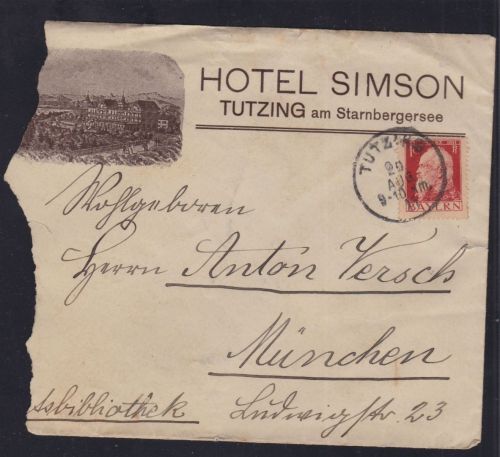 HOTEL SIMSON
TUTZING am Starnbergersee
TUTZING
20
AUG
9-10 Vm.
BAYERN
Wohlgeboren
Herrn Anton Versch
München
tsbibliothek Ludwigstr. 23